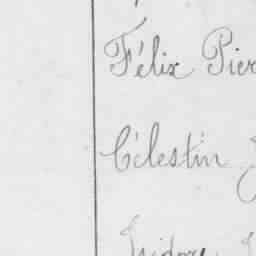 Félix Pier
Célestin J
Isidore J